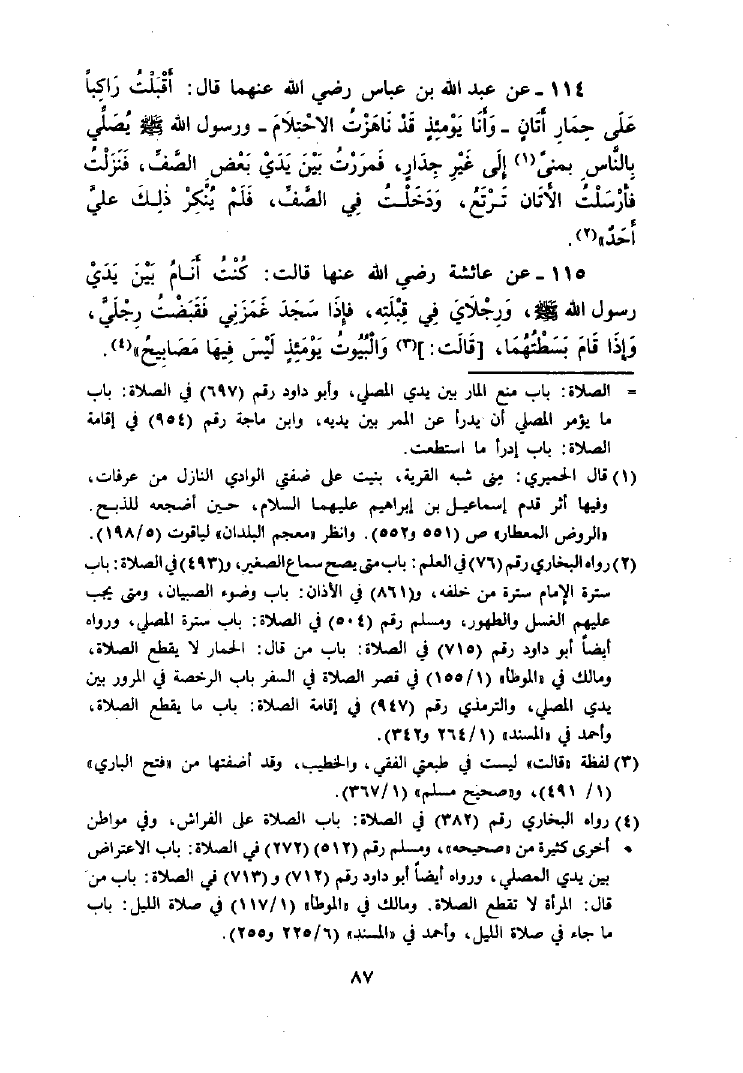 ١١٤ ـ عن عبد الله بن عباس رضي الله عنهما قال: أَقْبَلْتُ رَاكِباً
عَلَى حِمَارِ أَتَانٍ ـ وَأَنَا يَوْمَئِذٍ قَدْ نَاهَزْتُ الاحْتِلَامَ ـ ورسول الله ﷺ يُصَلِّي
بِالنَّاسِ بِمنىً(١) إِلَى غَيْرِ جِدَارٍ، فَمرَرْتُ بَيْنَ يَدَيْ بَعْضِ الصَّفِّ، فَنَزَلْتُ
فأرْسَلْتُ الأتَان تَرْتَعُ، وَدَخَلْتُ فِي الصَّفِّ، فَلَمْ يُنْكِرْ ذلِكَ عليَّ
أَحَدٌ»(٢).
١١٥ ـ عن عائشة رضي الله عنها قالت: كُنْتُ أَنَامُ بَيْنَ يَدَيْ
رسول الله ﷺ، وَرِجْلَايَ فِي قِبْلَتِه، فإذَا سَجَدَ غَمَزَنِي فَقَبَضْتُ رِجْلَيَّ،
وَإِذَا قَامَ بَسَطْتُهُمَا، [قَالَت:](٣) وَالْبُيُوتُ يَوْمَئِذٍ لَيْسَ فِيهَا مَصَابِيحُ»(٤).
= الصلاة: باب منع المار بين يدي المصلي، وأبو داود رقم (٦٩٧) في الصلاة: باب
ما يؤمر المصلي أن يدرأ عن الممر بين يديه، وابن ماجة رقم (٩٥٤) في إقامة
الصلاة: باب إدرأ ما استطعت.
(١) قال الحميري: مِنى شبه القرية، بنيت على ضفتي الوادي النازل من عرفات،
وفيها أثر قدم إسماعيل بن إبراهيم عليهما السلام، حين أضجعه للذبح.
«الروض المعطار» ص (٥٥١ و٥٥٢). وانظر «معجم البلدان» لياقوت (١٩٨/٥).
(٢) رواه البخاري رقم (٧٦) في العلم: باب متى يصح سماع الصغير، و(٤٩٣) في الصلاة: باب
سترة الإمام سترة من خلفه، و(٨٦١) في الأذان: باب وضوء الصبيان، ومتى يجب
عليهم الغسل والطهور، ومسلم رقم (٥٠٤) في الصلاة: باب سترة المصلي، ورواه
أيضاً أبو داود رقم (٧١٥) في الصلاة: باب من قال: الحمار لا يقطع الصلاة،
ومالك في «الموطأ» (١٥٥/١) في قصر الصلاة في السفر باب الرخصة في المرور بين
يدي المصلي، والترمذي رقم (٩٤٧) في إقامة الصلاة: باب ما يقطع الصلاة،
وأحمد في «المسند» (٢٦٤/١ و٣٤٢).
(٣) لفظة «قالت» ليست في طبعتي الفقي، والخطيب، وقد أضفتها من «فتح الباري»
(١/ ٤٩١)، و«صحيح مسلم» (٣٦٧/١).
(٤) رواه البخاري رقم (٣٨٢) في الصلاة: باب الصلاة على الفراش، وفي مواطن
أخرى كثيرة من «صحيحه»، ومسلم رقم (٥١٢) (٢٧٢) في الصلاة: باب الاعتراض
بين يدي المصلي، ورواه أيضاً أبو داود رقم (٧١٢) و (٧١٣) في الصلاة: باب من
قال: المرأة لا تقطع الصلاة. ومالك في «الموطأ» (١١٧/١) في صلاة الليل: باب
ما جاء في صلاة الليل، وأحمد في «المسند» (٢٢٥/٦ و٢٥٥).
٨٧